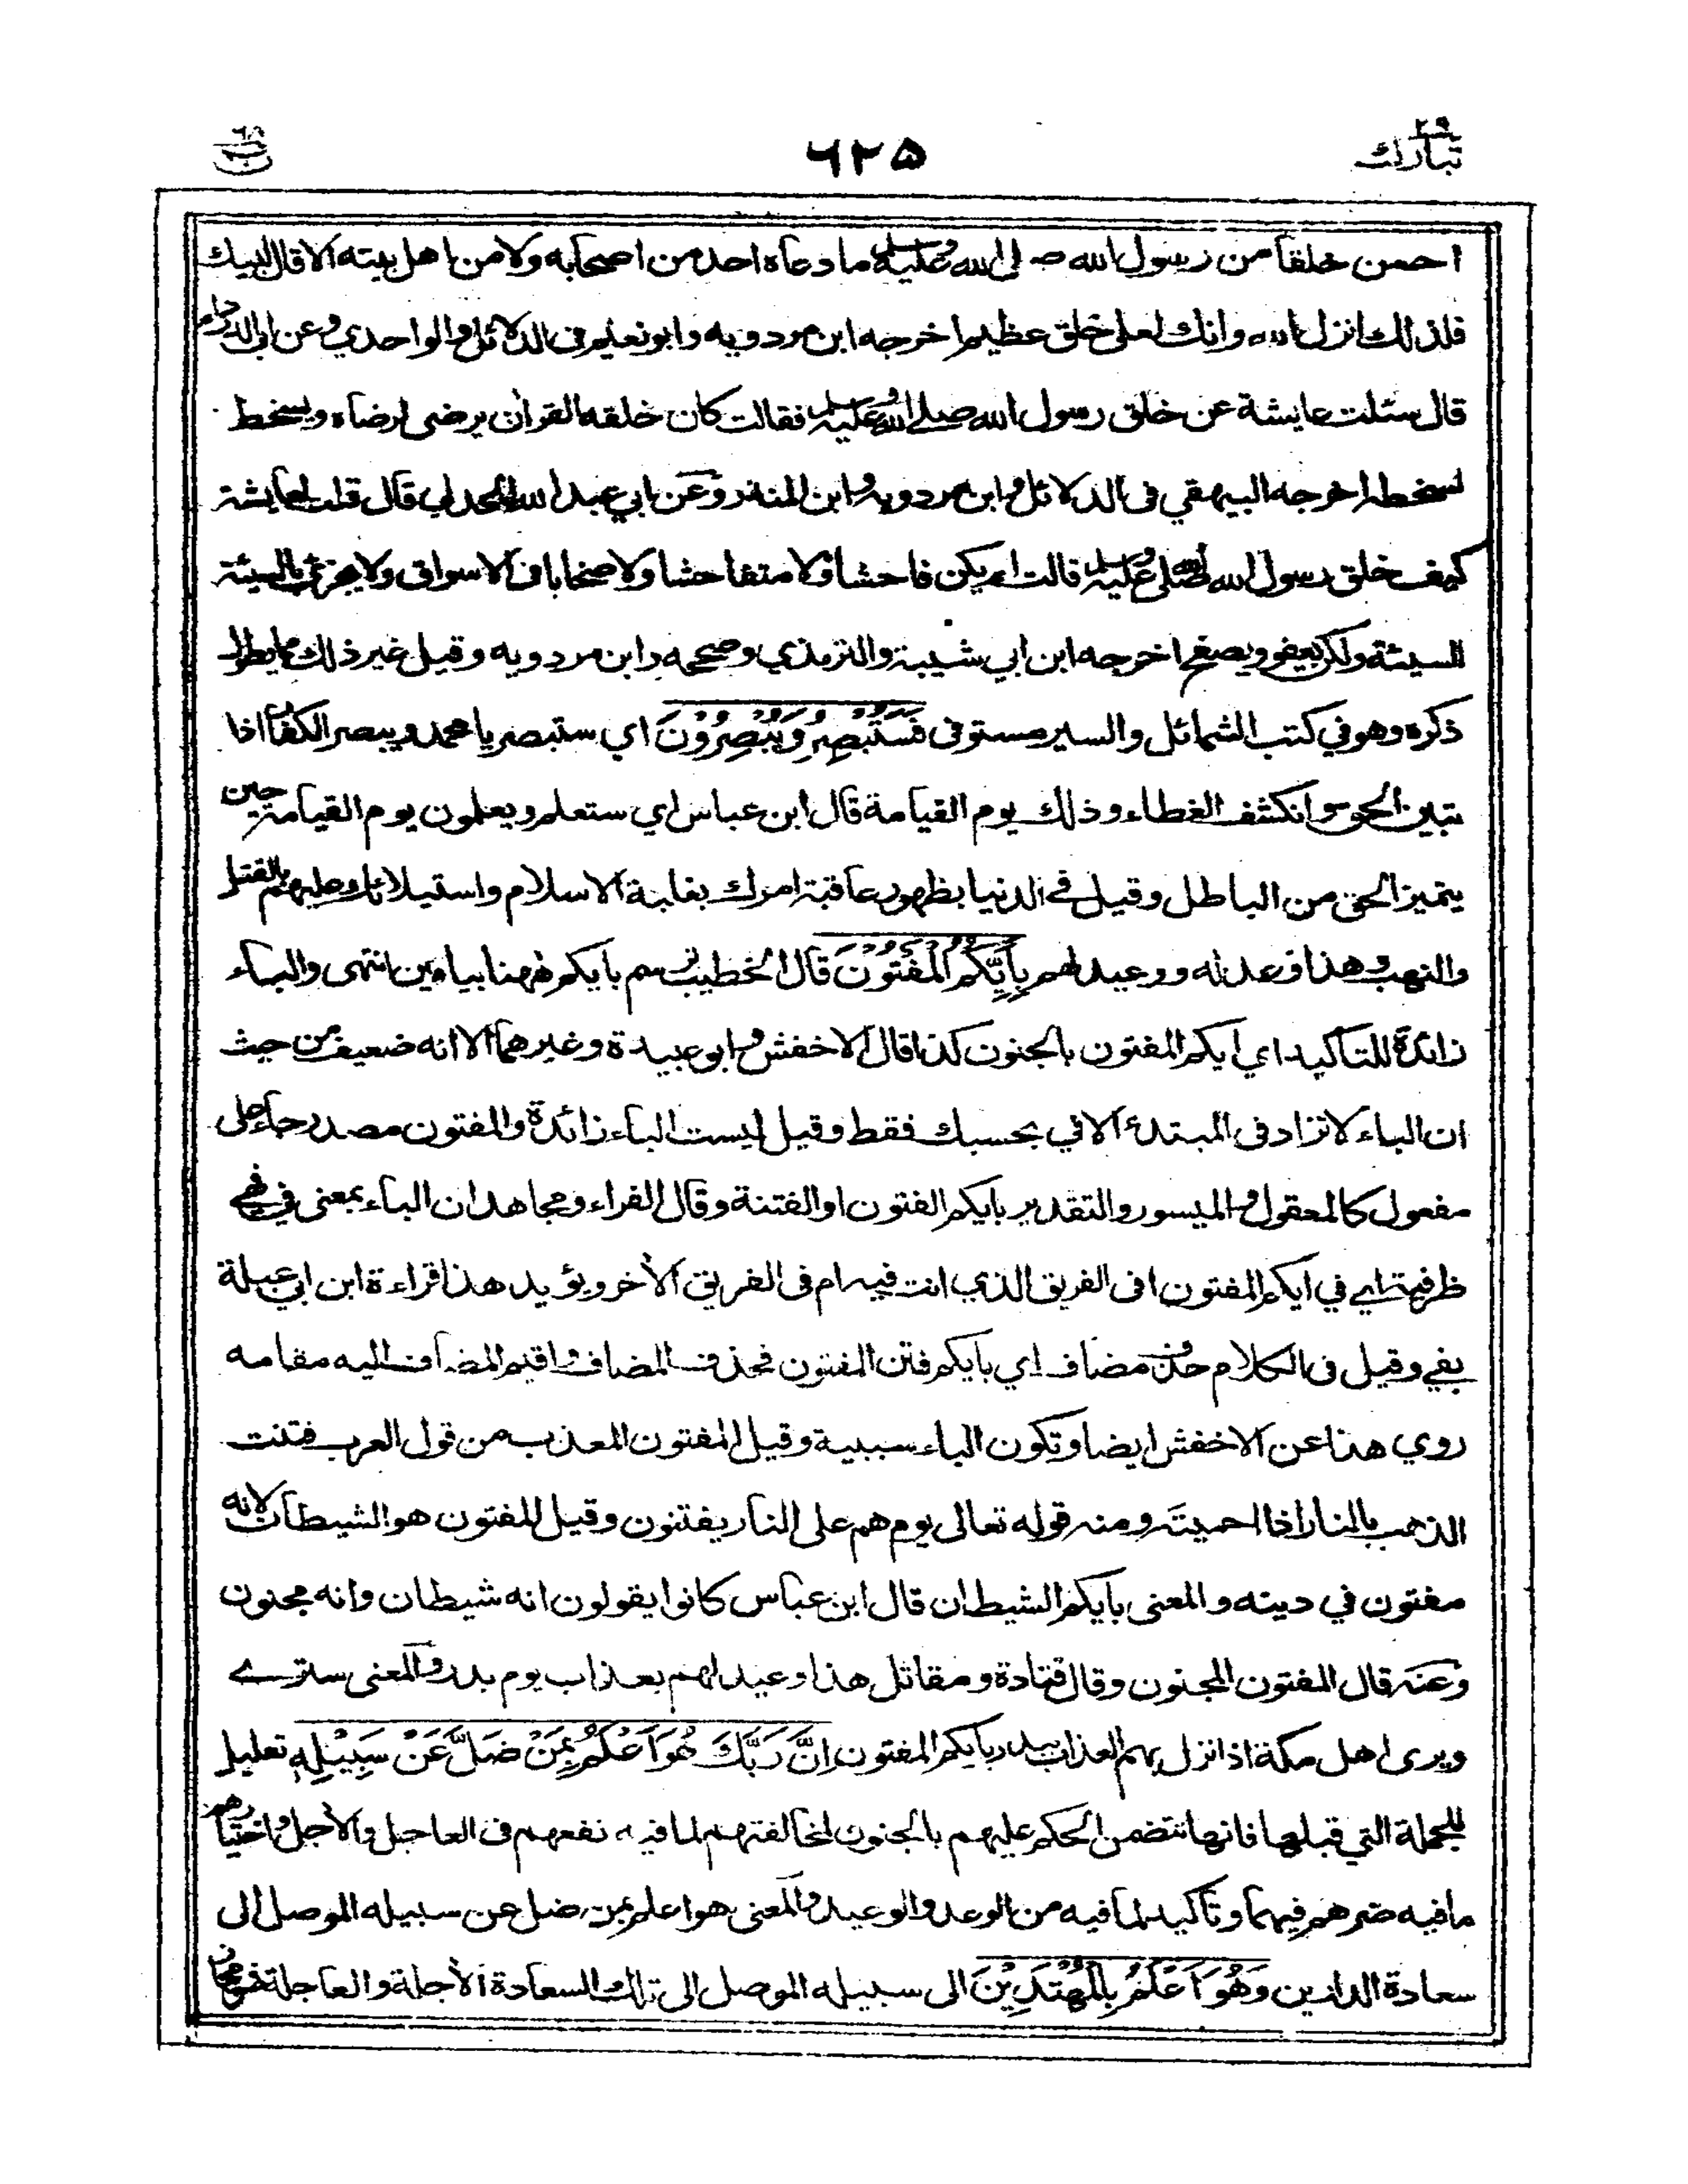 تبارك ٢٩
٦٢٥
ن ٦٨
احسن خلقا من رسول الله صلى الله عليه وسلم ما دعاه احد من اصحابه ولا من اهل بيته الا قال لبيك
فلذلك انزل الله وانك لعلى خلق عظيم اخرجه ابن مردويه وابو نعيم في الدلائل والواحدي وعن ابي الدرداء
قال سئلت عايشة عن خلق رسول الله صلى الله عليه وسلم فقالت كان خلقه القرآن يرضى لرضاه ويسخط
لسخطه اخرجه البيهقي في الدلائل وابن مردويه وابن المنذر وعن ابي عبد الله الجدلي قال قلت لعايشة
كيف خلق رسول الله صلى الله عليه وسلم قالت لم يكن فاحشا ولا متفاحشا ولا صخابا في الاسواق ولا يجزئ بالسيئة
السيئة ولكن يعفو ويصفح اخرجه ابن ابي شيبة والترمذي وصححه وابن مردويه وقيل غير ذلك مما يطول
ذكره وهو في كتب الشمائل والسير مستوفى فَسَتُبْصِرُ وَيُبْصِرُوْنَ اي ستبصر يا محمد ويبصر الكفار اذا
تبين الحق وانكشف الغطاء وذلك يوم القيامة قال ابن عباس اي ستعلم ويعلمون يوم القيامة حين
يتميز الحق من الباطل وقيل في الدنيا بظهور عاقبة امرك بغلبة الاسلام واستيلائك عليهم بالقتل
والنهب وهذا وعد له ووعيد لهم بِأَيِّكُمُ الْمَفْتُوْنَ قال الخطيب ترسم بايكم ههنا بياءين انتهى والباء
زائدة للتأكيد اي ايكم المفتون بالجنون كذا قال الاخفش وابو عبيدة وغيرهما الا انه ضعيف من حيث
ان الباء لا تزاد في المبتدئ الا في بحسبك فقط وقيل ليست الباء زائدة والمفتون مصدر جاء على
مفعول كالمعقول والميسور والتقدير بايكم الفتون او الفتنة وقال الفراء ومجاهد ان الباء بمعنى في فهي
ظرفية اي في ايكم المفتون افي الفريق الذي انت فيه ام في الفريق الآخر ويؤيد هذا قراءة ابن ابي عبلة
بفي وقيل في الكلام حذف مضاف اي بايكم فتن المفتون فحذف المضاف واقيم المضاف اليه مقامه
روي هذا عن الاخفش ايضا وتكون الباء سببية وقيل المفتون المعذب من قول العرب فتنت
الذهب بالنار اذا احميته ومنه قوله تعالى يوم هم على النار يفتنون وقيل المفتون هو الشيطان لانه
مفتون في دينه والمعنى بايكم الشيطان قال ابن عباس كانوا يقولون انه شيطان وانه مجنون
وعنه قال المفتون المجنون وقال قتادة ومقاتل هذا وعيد لهم بعذاب يوم بدر والمعنى سترے
ويرى اهل مكة اذا نزل بهم العذاب ببدر بايكم المفتون اِنَّ رَبَّكَ هُوَ اَعْلَمُ بِمَنْ ضَلَّ عَنْ سَبِيْلِهٖ تعليل
للجملة التي قبلها فانها تتضمن الحكم عليهم بالجنون لمخالفتهم لما فيه نفعهم في العاجل والآجل واختيارهم
ما فيه ضرهم فيهما وتأكيد لما فيه من الوعد والوعيد والمعنى هو اعلم بمن ضل عن سبيله الموصل الى
سعادة الدارين وَهُوَ اَعْلَمُ بِالْمُهْتَدِيْنَ الى سبيله الموصل الى تلك السعادة الآجلة والعاجلة فهو مجاز